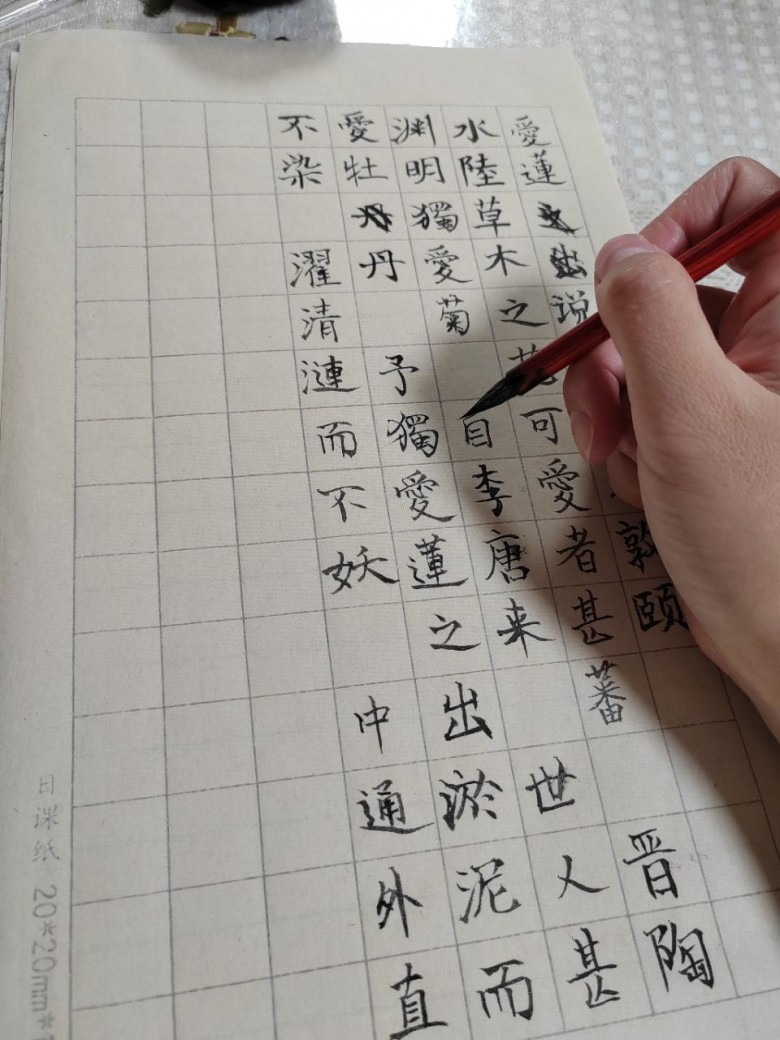 愛蓮说 敦頤
水陸草木之花可愛者甚蕃 晋陶
渊明獨愛菊 自李唐来 世人甚
愛牡丹 予獨愛蓮之出淤泥而
不染 濯清漣而不妖 中通外直
日课纸 20*20mm*